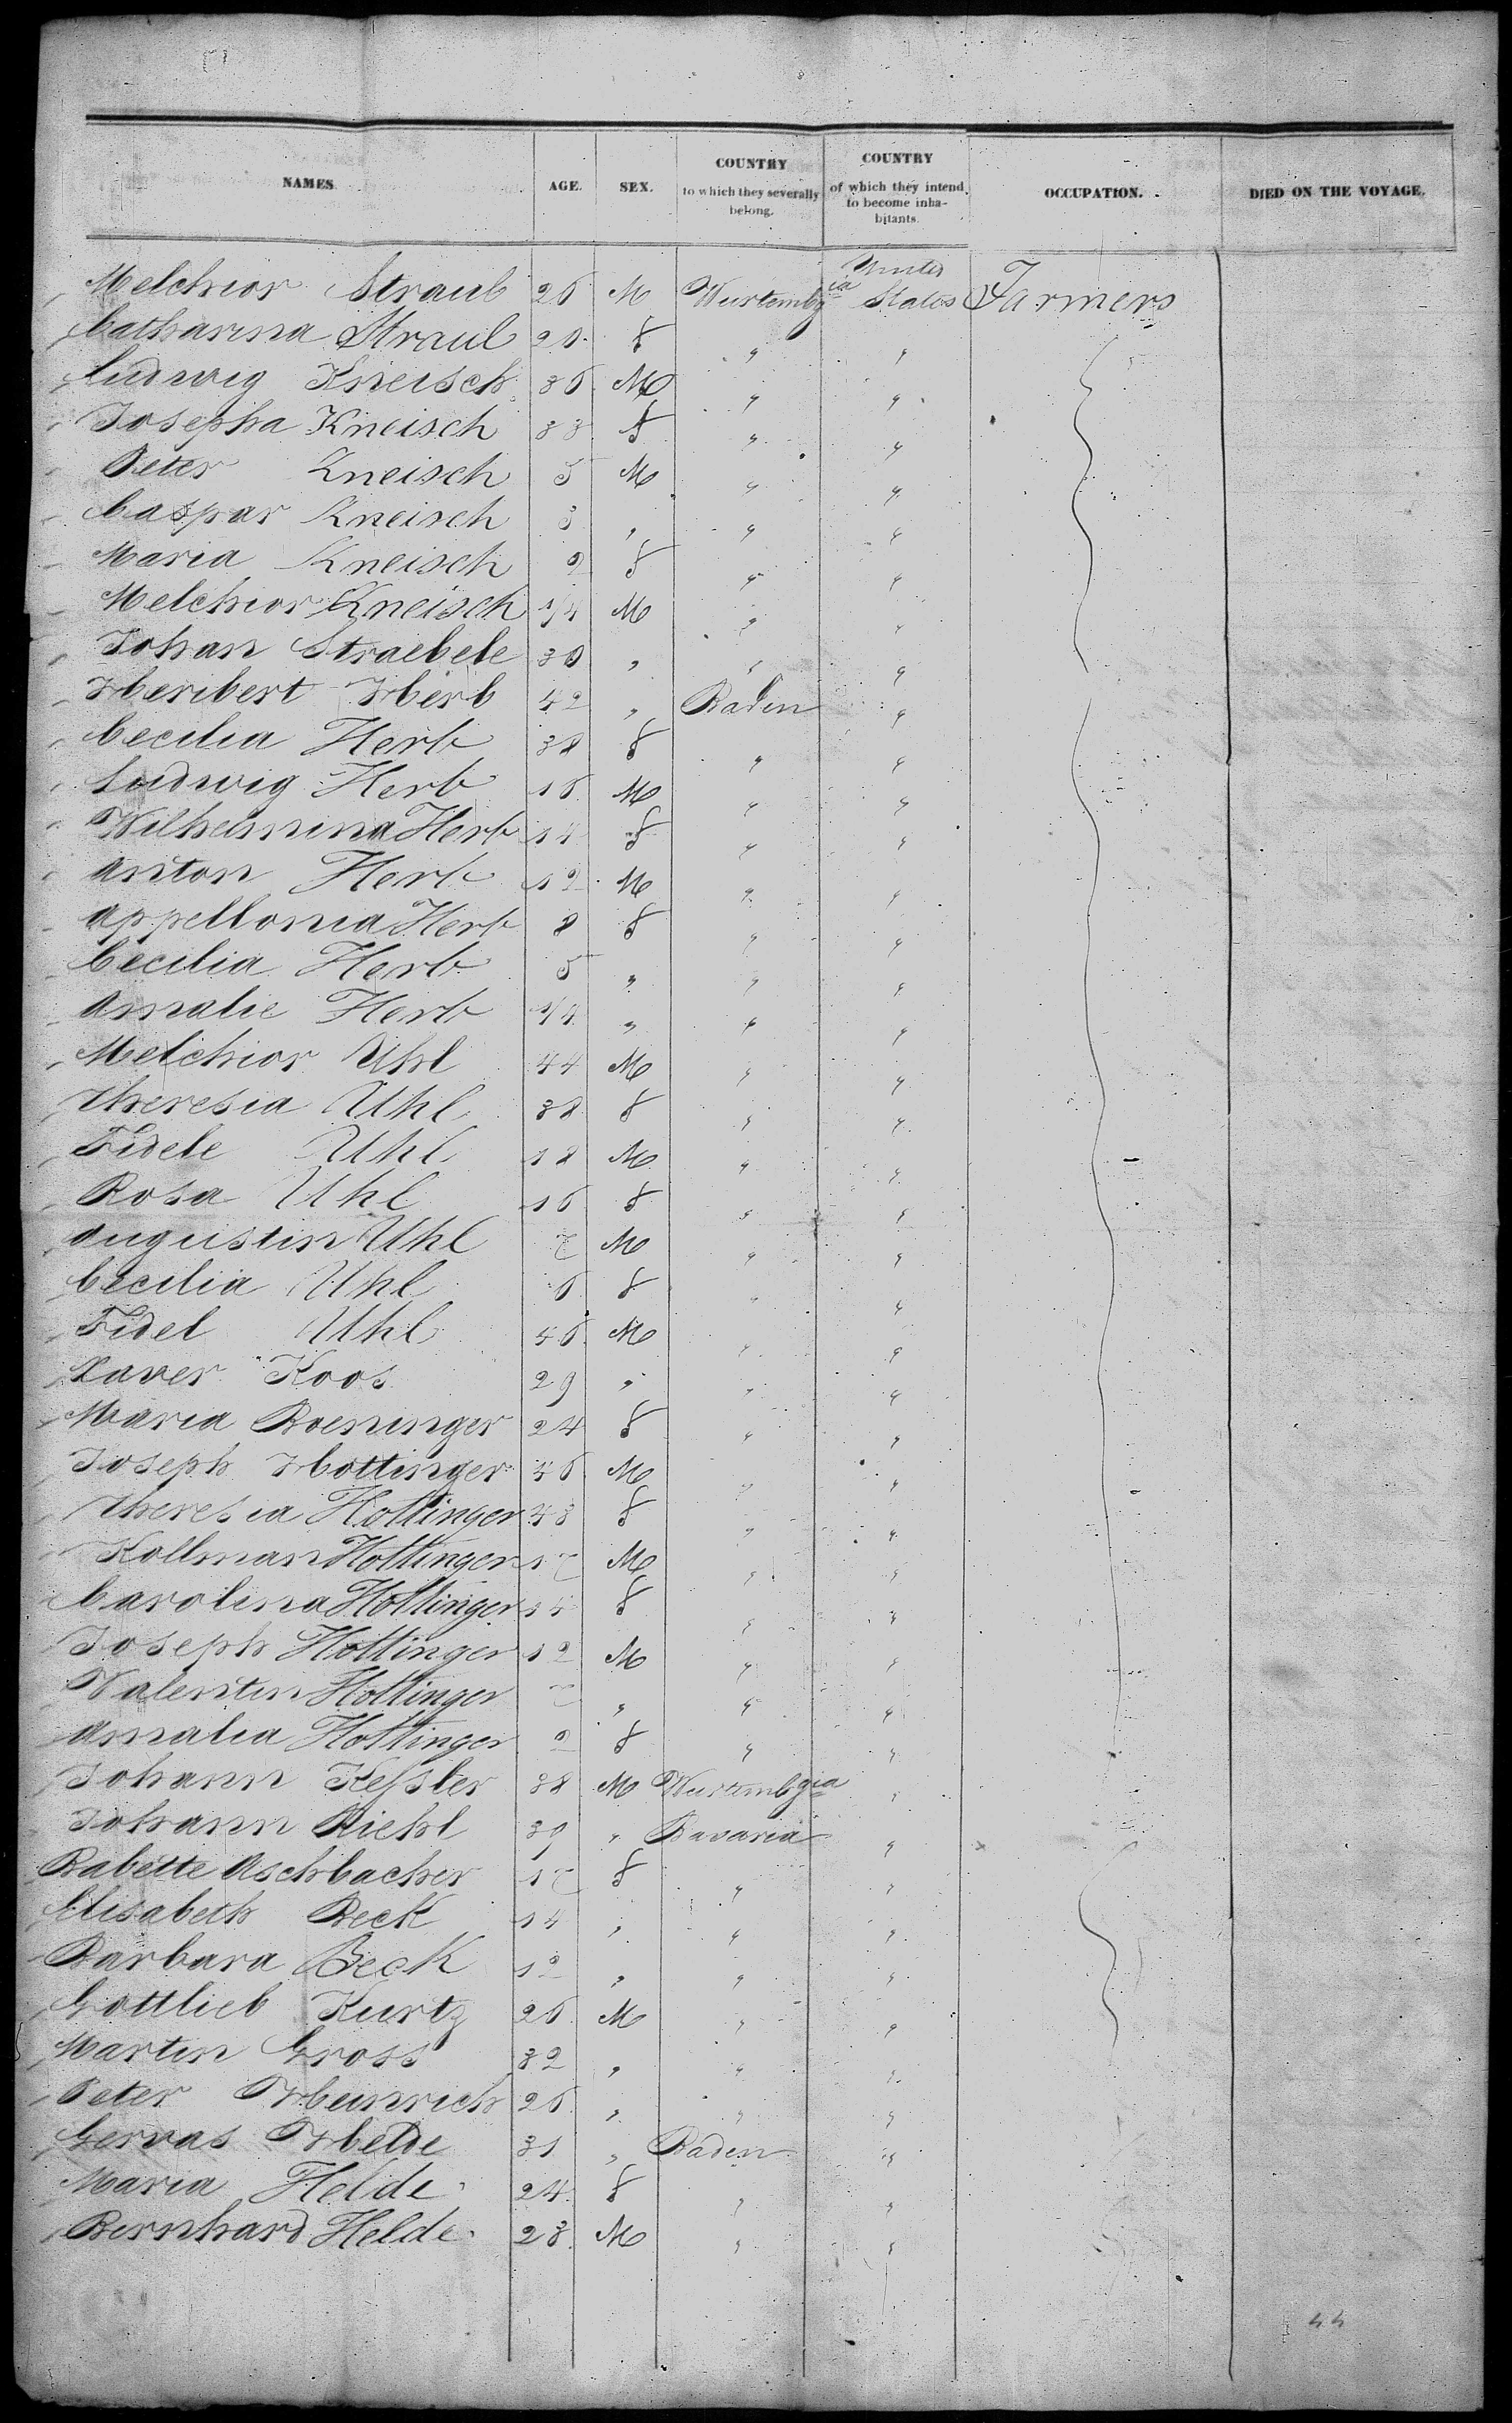 NAMES. AGE. SEX. COUNTRY to which they severally belong. COUNTRY of which they intend to become inhabitants. OCCUPATION. DIED ON THE VOYAGE.
Melchior Straub 26 M Wurtembgia United States Farmers
Catharina Straub 20 f " "
Ludwig Kneisch 36 M " "
Josepha Kneisch 33 f " "
Peter Kneisch 5 M " "
Caspar Kneisch 3 " " "
Maria Kneisch 2 f " "
Melchior Kneisch 1/4 M " "
Johan Straebele 30 " " "
Heribert Herb 42 " Baden "
Cecilia Herb 38 f " "
Ludwig Herb 16 M " "
Wilhelmina Herb 14 f " "
Anton Herb 12 M " "
Appellonia Herb 8 f " "
Cecilia Herb 5 " " "
Amalie Herb 1/4 " " "
Melchior Uhl 44 M " "
Theresia Uhl 38 f " "
Fidele Uhl 18 M " "
Rosa Uhl 16 f " "
Augustin Uhl 7 M " "
Cecilia Uhl 6 f " "
Fidel Uhl 46 M " "
Xaver Koos 29 " " "
Maria Boeninger 24 f " "
Joseph Hottinger 46 M " "
Theresia Hottinger 43 f " "
Kollman Hottinger 17 M " "
Carolina Hottinger 14 f " "
Joseph Hottinger 12 M " "
Valentin Hottinger 7 " " "
Amalia Hottinger 2 f " "
Johann Kessler 38 M Wurtembgia "
Johann Riehl 39 " Bavaria "
Babette Aschbacher 17 f " "
Elisabeth Beck 14 " " "
Barbara Beck 12 " " "
Gottlieb Kurtz 26 M " "
Martin Gross 32 " " "
Peter Heinrich 26 " " "
Gervas Helde 31 " Baden "
Maria Helde 24 f " "
Bernhard Helde 28 M " "
44